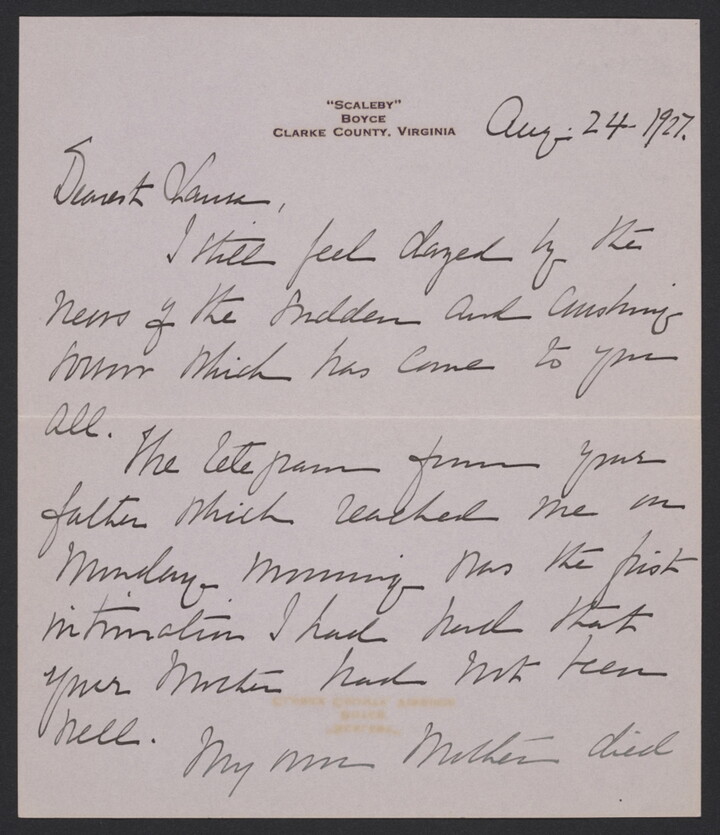 "SCALEBY"
BOYCE
CLARKE COUNTY, VIRGINIA
Aug. 24 1927.
Dearest Laura,
I still feel dazed by the
news of the sudden and crushing
sorrow which has come to you
all.
The telegram from your
father which reached me on
Monday morning was the first
intimation I had had that
your Mother had not been
well.
My own Mother died